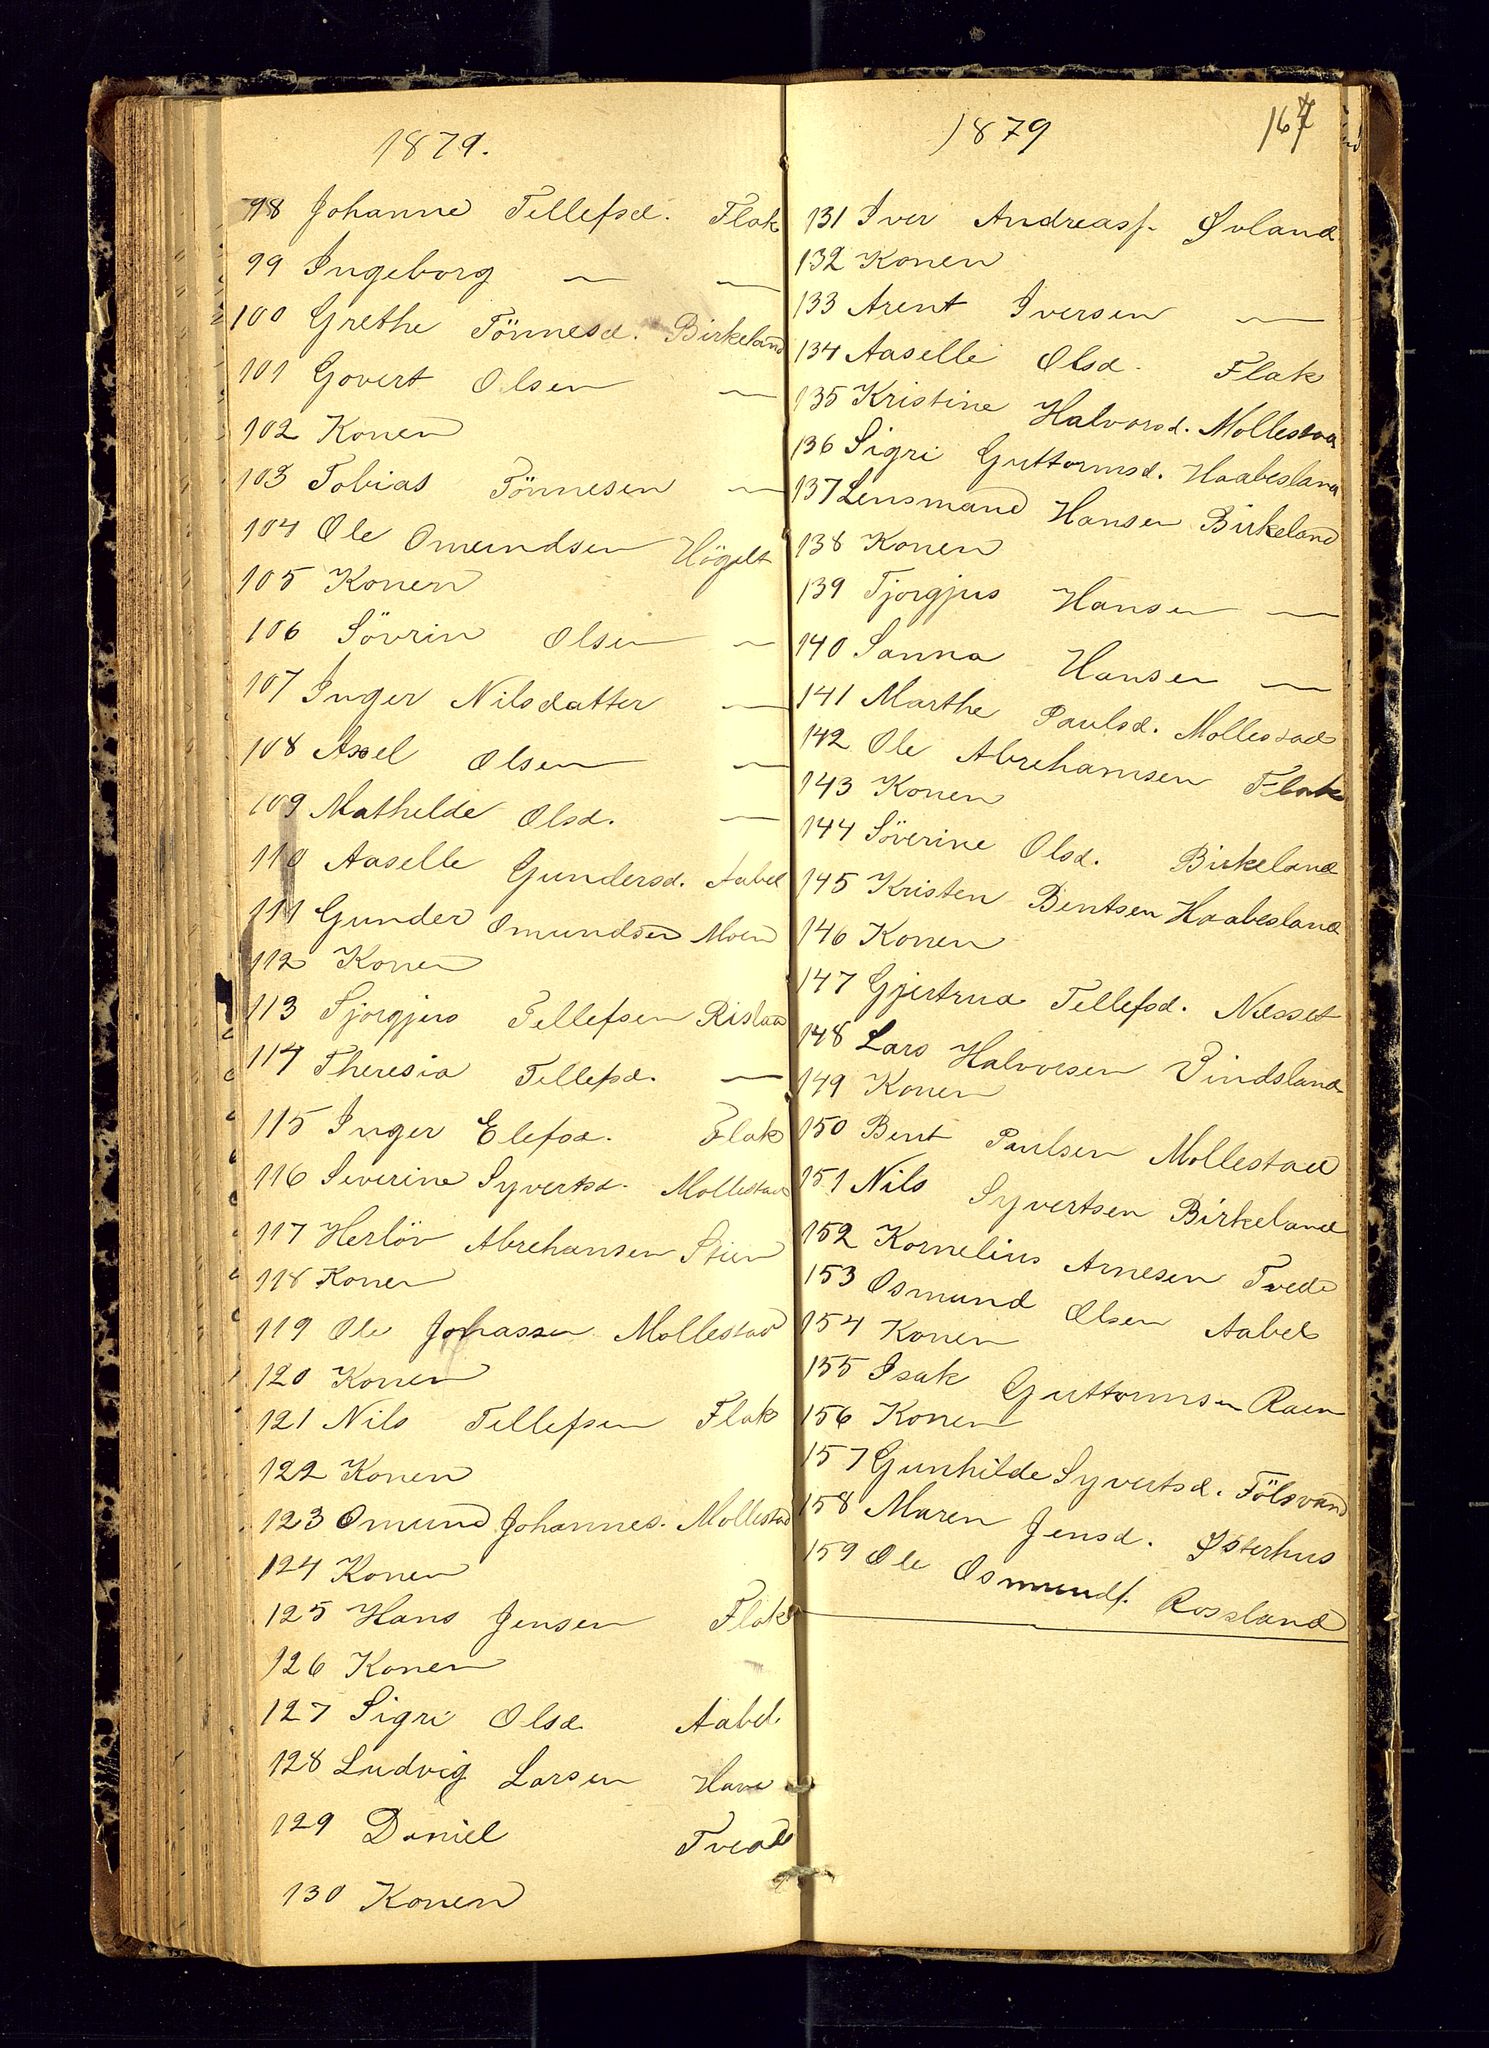 1879.
98 Johanne Tellefsd. Flak
99 Ingeborg — —
100 Grethe Tönnesd. Birkeland
101 Govert Olsen —
102 Konen
103 Tobias Tönnesen —
104 Ole Omundsen Högelt
105 Konen
106 Sövrin Olsen —
107 Inger Nilsdatter —
108 Axel Olsen —
109 Mathelde Olsd. —
110 Aaselle Gundersd. Aabel
111 Gunder Omundsen Moen
112 Konen
113 Sjorgjus Tellefsen Rislaa
114 Theresia Tellefsd. —
115 Inger Elefsd. Flak
116 Severine Syvertsd. Mollestad
117 Herlöv Abrehansen Stien
118 Konen
119 Ole Johassen Mollestad
120 Konen
121 Nils Tellefsen Flak
122 Konen
123 Omund Johannes. Mollestad
124 Konen
125 Hans Jensen Flak
126 Konen
127 Sigri Olsd. Aabel
128 Ludvig Larsen Have
129 Daniel Tvede
130 Konen
1879 167
131 Iver Andreasf. Øvland
132 Konen
133 Arent Iversen —
134 Aaselle Olsd. Flak
135 Kristine Halvorsd. Mollestad
136 Sigri Guttormsd. Haabesland
137 Lensmand Hansen Birkeland
138 Konen
139 Tjorgjus Hansen —
140 Sanna Hansen —
141 Marthe Paulsd. Mollestad
142 Ole Abrehamsen Flak
143 Konen
144 Söverine Olsd. Birkeland
145 Kristen Bentsen Haabesland
146 Konen
147 Gjertrud Tellefsd. Næsset
148 Lars Halvorsen Vindsland
149 Konen
150 Bent Paulsen Mollestad
151 Nils Syvertsen Birkeland
152 Kornelius Arnesen Tvede
153 Osmund Olsen Aabel
154 Konen
155 Isak Guttormsen Raen
156 Konen
157 Gunhilde Syvertsd. Fölsvand
158 Maren Jensd. Østerhus
159 Ole Osmundf. Rossland